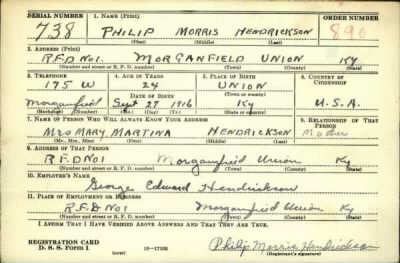 SERIAL NUMBER 1. NAME (Print) ORDER NUMBER
738 PHILIP MORRIS HENDRICKSON 890
(First) (Middle) (Last)
2. ADDRESS (Print)
R.F.D No1. MORGANFIELD UNION KY
(Number and street or R. F. D. number) (Town) (County) (State)
3. TELEPHONE 4. AGE IN YEARS 5. PLACE OF BIRTH 6. COUNTRY OF CITIZENSHIP
175 W 24 UNION
DATE OF BIRTH (Town or county)
Morganfield Sept 27 1916 Ky U.S.A.
(Exchange) (Number) (Mo.) (Day) (Yr.) (State or country)
7. NAME OF PERSON WHO WILL ALWAYS KNOW YOUR ADDRESS 8. RELATIONSHIP OF THAT PERSON
MRS MARY MARTINA HENDRICKSON Mother
(Mr., Mrs., Miss) (First) (Middle) (Last)
9. ADDRESS OF THAT PERSON
R.F.D No1 Morganfield Union Ky
(Number and street or R. F. D. number) (Town) (County) (State)
10. EMPLOYER'S NAME
George Edward Hendrickson
11. PLACE OF EMPLOYMENT OR BUSINESS
R.F.D No1 Morganfield Union Ky
(Number and street or R. F. D. number) (Town) (County) (State)
I AFFIRM THAT I HAVE VERIFIED ABOVE ANSWERS AND THAT THEY ARE TRUE.
REGISTRATION CARD
D. S. S. Form 1 (over) 16—17105 Philip Morris Hendrickson
(Registrant's signature)